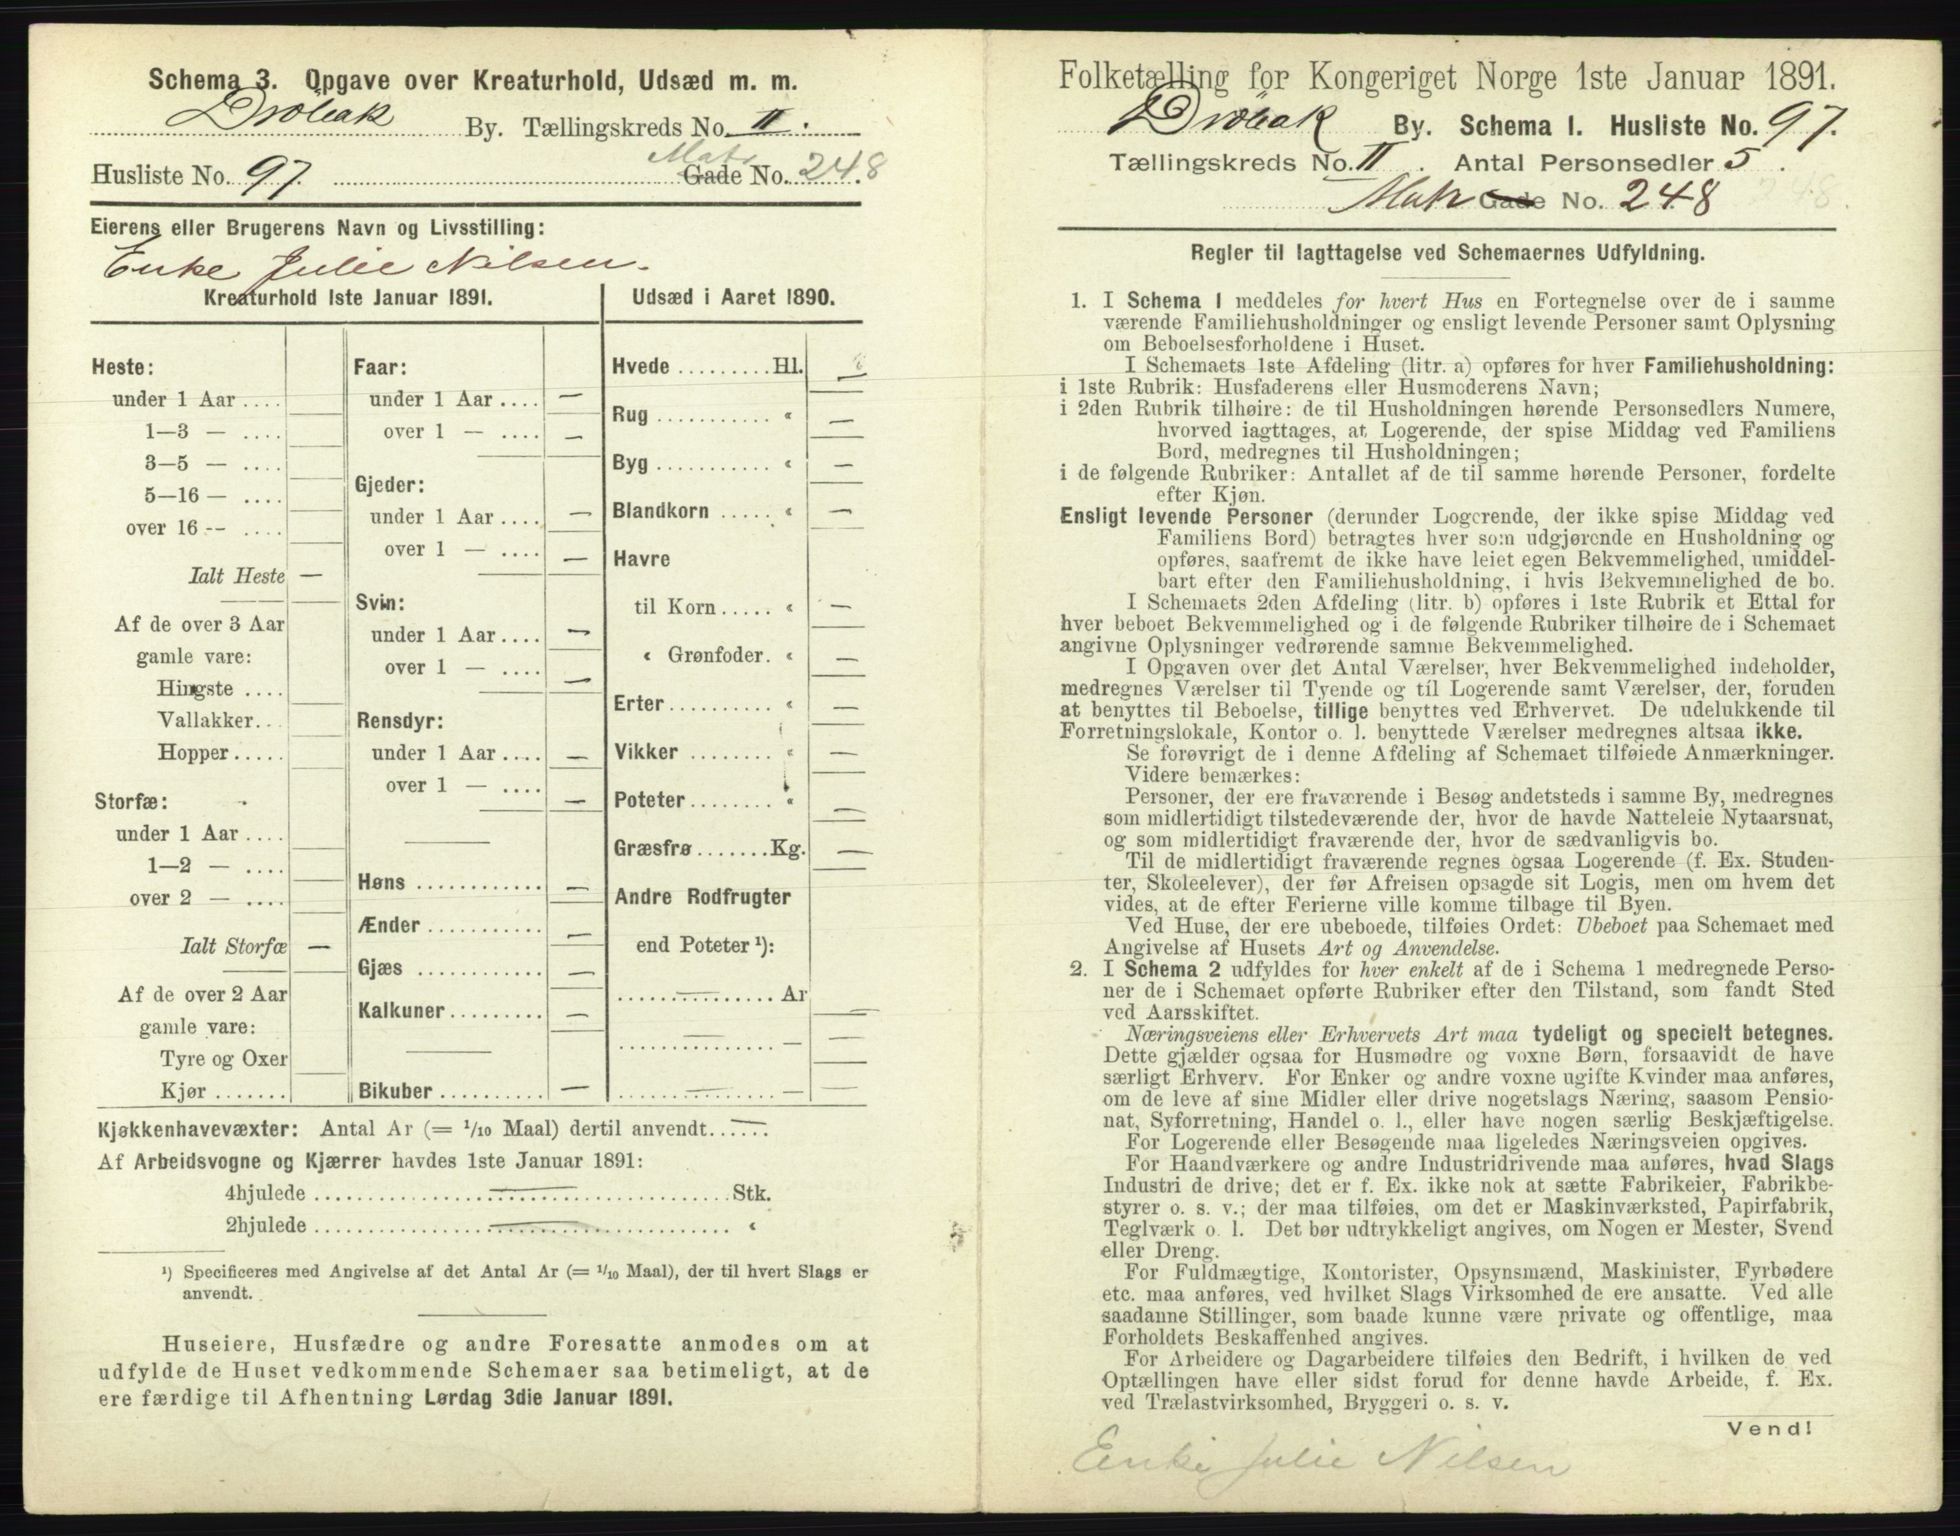 Schema 3. Opgave over Kreaturhold, Udsæd m. m.
Drøbak By. Tællingskreds No. II.
Husliste No. 97. Matr Gade No. 248.
Eierens eller Brugerens Navn og Livsstilling:
Enke Julie Nilsen.
Kreaturhold 1ste Januar 1891.
Heste:
under 1 Aar ....
1—3 — ....
3—5 — ....
5—16 — ....
over 16 -- ....
Ialt Heste —
Af de over 3 Aar
gamle vare:
Hingste ....
Vallakker...
Hopper.....
Storfæ:
under 1 Aar ....
1—2 — ....
over 2 — ....
Ialt Storfæ —
Af de over 2 Aar
gamle vare:
Tyre og Oxer
Kjør .......
Faar:
under 1 Aar .... —
over 1 — .... —
Gjeder:
under 1 Aar .... —
over 1 — .... —
Svin:
under 1 Aar .... —
over 1 — .... —
Rensdyr:
under 1 Aar .... —
over 1 — .... —
Høns ............ —
Ænder ........... —
Gjæs ............ —
Kalkuner ......... —
Bikuber .......... —
Udsæd i Aaret 1890.
Hvede ......... Hl. —
Rug ........... « —
Byg ........... « —
Blandkorn ..... « —
Havre
til Korn ..... « —
« Grønfoder. « —
Erter .......... « —
Vikker ........ « —
Poteter ........ « —
Græsfrø ....... Kg. —
Andre Rodfrugter
end Poteter ¹):
................ Ar —
................ — —
................ — —
Kjøkkenhavevæxter: Antal Ar (= 1/10 Maal) dertil anvendt. —
Af Arbeidsvogne og Kjærrer havdes 1ste Januar 1891:
4hjulede ........................................ Stk.
2hjulede ........................................ «
¹) Specificeres med Angivelse af det Antal Ar (= 1/10 Maal), der til hvert Slags er
anvendt.
Huseiere, Husfædre og andre Foresatte anmodes om at
udfylde de Huset vedkommende Schemaer saa betimeligt, at de
ere færdige til Afhentning Lørdag 3die Januar 1891.
Folketælling for Kongeriget Norge 1ste Januar 1891.
Drøbak By. Schema I. Husliste No. 97.
Tællingskreds No. II. Antal Personsedler 5.
Matr Gade No. 248 248.
Regler til Iagttagelse ved Schemaernes Udfyldning.
1. I Schema 1 meddeles for hvert Hus en Fortegnelse over de i samme
værende Familiehusholdninger og ensligt levende Personer samt Oplysning
om Beboelsesforholdene i Huset.
I Schemaets 1ste Afdeling (litr. a) opføres for hver Familiehusholdning:
i 1ste Rubrik: Husfaderens eller Husmoderens Navn;
i 2den Rubrik tilhøire: de til Husholdningen hørende Personsedlers Numere,
hvorved iagttages, at Logerende, der spise Middag ved Familiens
Bord, medregnes til Husholdningen;
i de følgende Rubriker: Antallet af de til samme hørende Personer, fordelte
efter Kjøn.
Ensligt levende Personer (derunder Logerende, der ikke spise Middag ved
Familiens Bord) betragtes hver som udgjørende en Husholdning og
opføres, saafremt de ikke have leiet egen Bekvemmelighed, umiddel-
bart efter den Familiehusholdning, i hvis Bekvemmelighed de bo.
I Schemaets 2den Afdeling (litr. b) opføres i 1ste Rubrik et Ettal for
hver beboet Bekvemmelighed og i de følgende Rubriker tilhøire de i Schemaet
angivne Oplysninger vedrørende samme Bekvemmelighed.
I Opgaven over det Antal Værelser, hver Bekvemmelighed indeholder,
medregnes Værelser til Tyende og til Logerende samt Værelser, der, foruden
at benyttes til Beboelse, tillige benyttes ved Erhvervet. De udelukkende til
Forretningslokale, Kontor o. l. benyttede Værelser medregnes altsaa ikke.
Se forøvrigt de i denne Afdeling af Schemaet tilføiede Anmærkninger.
Videre bemærkes:
Personer, der ere fraværende i Besøg andetsteds i samme By, medregnes
som midlertidigt tilstedeværende der, hvor de havde Natteleie Nytaarsnat,
og som midlertidigt fraværende der, hvor de sædvanligvis bo.
Til de midlertidigt fraværende regnes ogsaa Logerende (f. Ex. Studen-
ter, Skoleelever), der før Afreisen opsagde sit Logis, men om hvem det
vides, at de efter Ferierne ville komme tilbage til Byen.
Ved Huse, der ere ubeboede, tilføies Ordet: Ubeboet paa Schemaet med
Angivelse af Husets Art og Anvendelse.
2. I Schema 2 udfyldes for hver enkelt af de i Schema 1 medregnede Perso-
ner de i Schemaet opførte Rubriker efter den Tilstand, som fandt Sted
ved Aarsskiftet.
Næringsveiens eller Erhvervets Art maa tydeligt og specielt betegnes.
Dette gjælder ogsaa for Husmødre og voxne Børn, forsaavidt de have
særligt Erhverv. For Enker og andre voxne ugifte Kvinder maa anføres,
om de leve af sine Midler eller drive nogetslags Næring, saasom Pensio-
nat, Syforretning, Handel o. l., eller have nogen særlig Beskjæftigelse.
For Logerende eller Besøgende maa ligeledes Næringsveien opgives.
For Haandværkere og andre Industridrivende maa anføres, hvad Slags
Industri de drive; det er f. Ex. ikke nok at sætte Fabrikeier, Fabrikbe-
styrer o. s. v.; der maa tilføies, om det er Maskinværksted, Papirfabrik,
Teglværk o. l. Det bør udtrykkeligt angives, om Nogen er Mester, Svend
eller Dreng.
For Fuldmægtige, Kontorister, Opsynsmænd, Maskinister, Fyrbødere
etc. maa anføres, ved hvilket Slags Virksomhed de ere ansatte. Ved alle
saadanne Stillinger, som baade kunne være private og offentlige, maa
Forholdets Beskaffenhed angives.
For Arbeidere og Dagarbeidere tilføies den Bedrift, i hvilken de ved
Optællingen have eller sidst forud for denne havde Arbeide, f. Ex.
ved Trælastvirksomhed, Bryggeri o. s. v.
Vend!
Enke Julie Nilsen